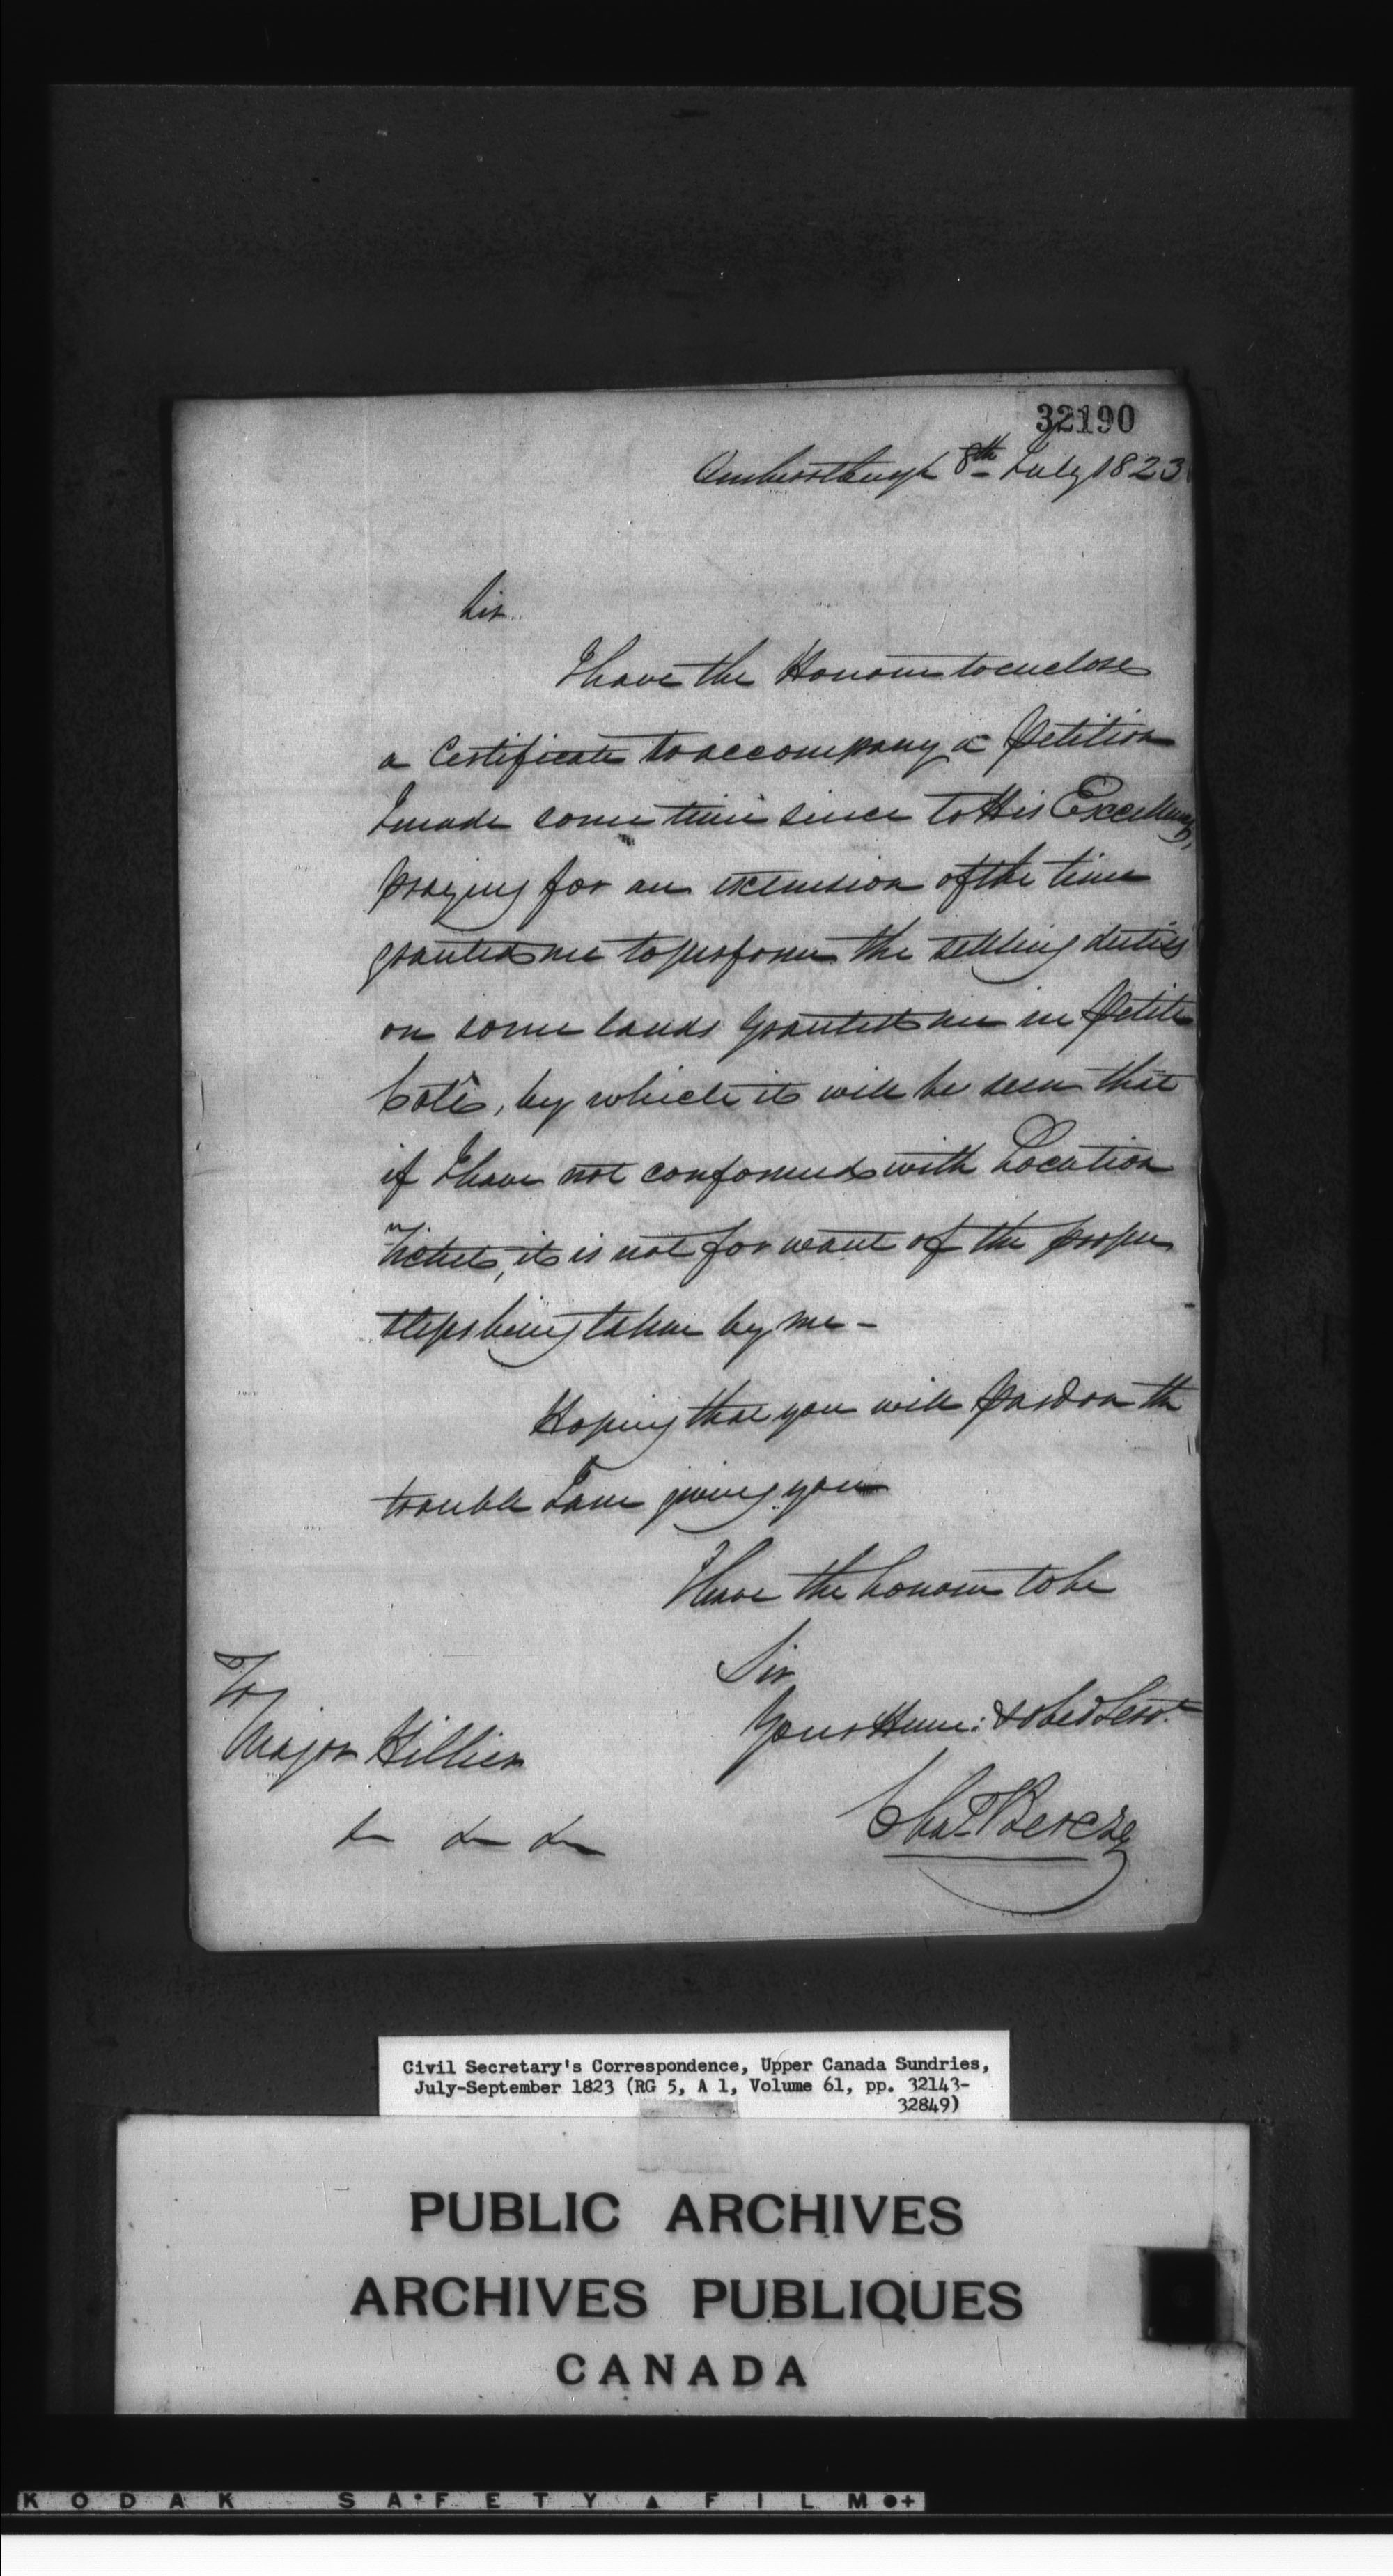 32190
Amherstburgh 8th July 1823
Sir
I have the Honour to enclose
a Certificate to accompany a Petition
I made some time since to His Excellency,
praying for an extension of the time
granted me to perform the settling duties
on some lands granted me in Petite
Cote, by which it will be seen that
if I have not conformed with Location
Ticket, it is not for want of the proper
steps being taken by me -
Hoping that you will pardon the
trouble I am giving you
I have the honour to be
Sir
Your Hum: & obed Servt
Chas Berczy
To
Major Hillier
Civil Secretary's Correspondence, Upper Canada Sundries,
July-September 1823 (RG 5, A 1, Volume 61, pp. 32143-
32849)
PUBLIC ARCHIVES
ARCHIVES PUBLIQUES
CANADA
KODAK SAFETY FILM